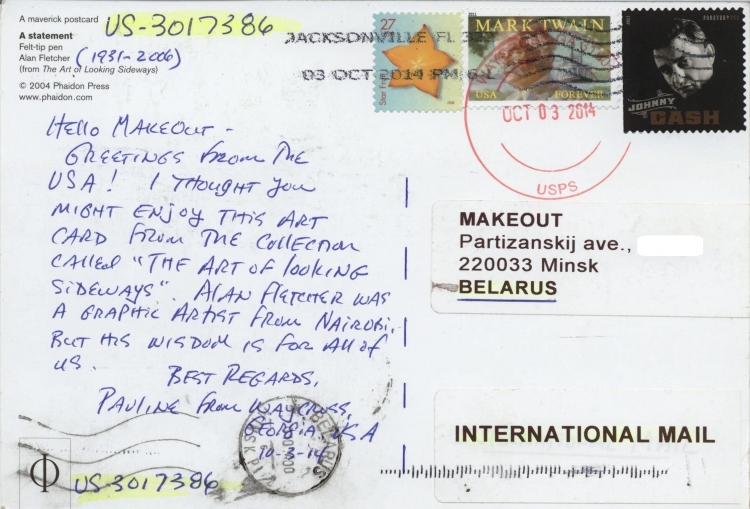 A maverick postcard
US-3017386
A statement
Felt-tip pen
Alan Fletcher (1931-2006)
(from The Art of Looking Sideways)
© 2004 Phaidon Press
www.phaidon.com
27
Star Fruit
MARK TWAIN
USA FOREVER
FOREVER
JOHNNY CASH
JACKSONVILLE FL
03 OCT 2014 PM
OCT 03 2014
USPS
Hello Makeout -
Greetings from the
USA! I thought you
might enjoy this art
card from the collection
called "The Art of Looking
Sideways". Alan Fletcher was
a graphic artist from Nairobi.
But his wisdom is for all of
us.
Best Regards,
Pauline from Waycross,
Georgia, USA
10-3-14
US-3017386
MAKEOUT
Partizanskij ave.,
220033 Minsk
BELARUS
INTERNATIONAL MAIL
BELARUS
Φ